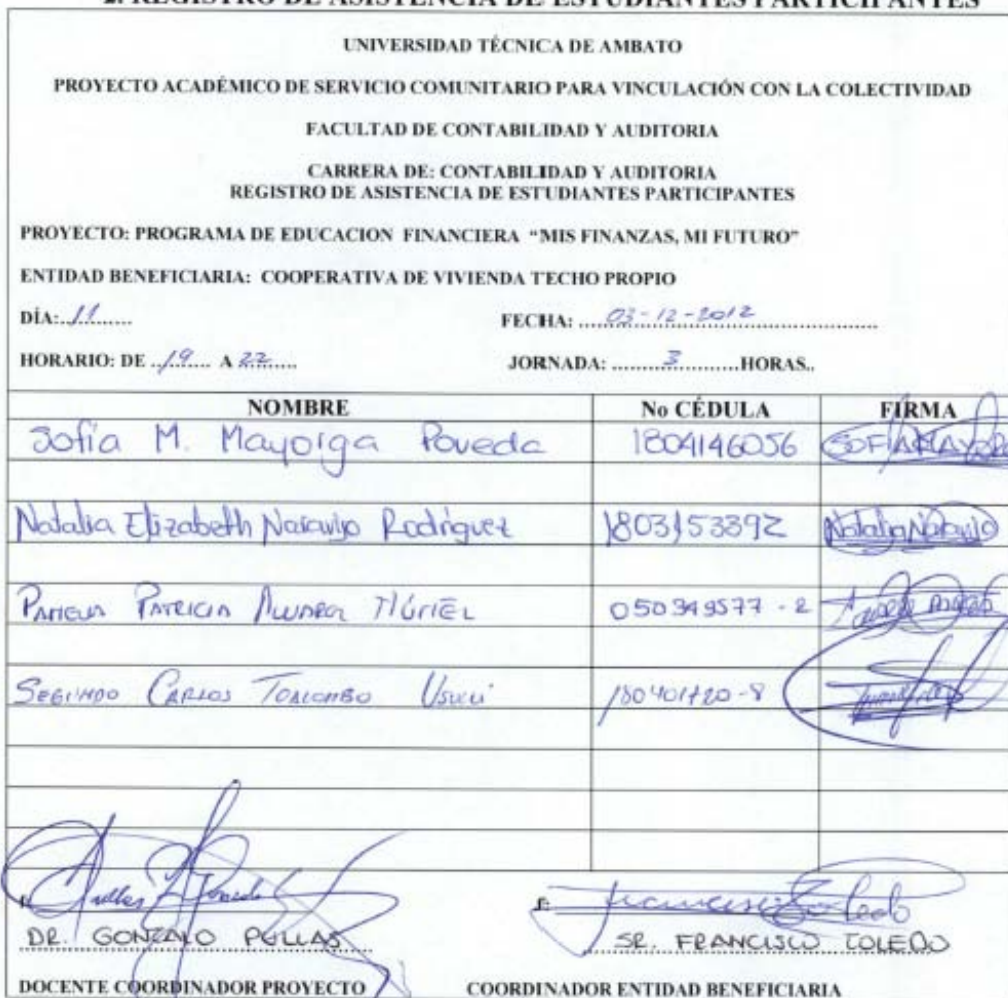 2. REGISTRO DE ASISTENCIA DE ESTUDIANTES PARTICIPANTES
UNIVERSIDAD TÉCNICA DE AMBATO
PROYECTO ACADÉMICO DE SERVICIO COMUNITARIO PARA VINCULACIÓN CON LA COLECTIVIDAD
FACULTAD DE CONTABILIDAD Y AUDITORIA
CARRERA DE: CONTABILIDAD Y AUDITORIA
REGISTRO DE ASISTENCIA DE ESTUDIANTES PARTICIPANTES
PROYECTO: PROGRAMA DE EDUCACION FINANCIERA "MIS FINANZAS, MI FUTURO"
ENTIDAD BENEFICIARIA: COOPERATIVA DE VIVIENDA TECHO PROPIO
DÍA: 11 FECHA: 03-12-2012
HORARIO: DE 19 A 22 JORNADA: 3 HORAS..
NOMBRE No CÉDULA FIRMA
Sofía M. Mayorga Poveda 1804146056 SOFIA MAYORGA
Natalia Elizabeth Naranjo Rodríguez 1803153392 Natalia Naranjo
PATRICIA 050349577-2
SEGUNDO CARLOS
DR. GONZALO PULLAS SR. FRANCISCO TOLEDO
DOCENTE COORDINADOR PROYECTO COORDINADOR ENTIDAD BENEFICIARIA